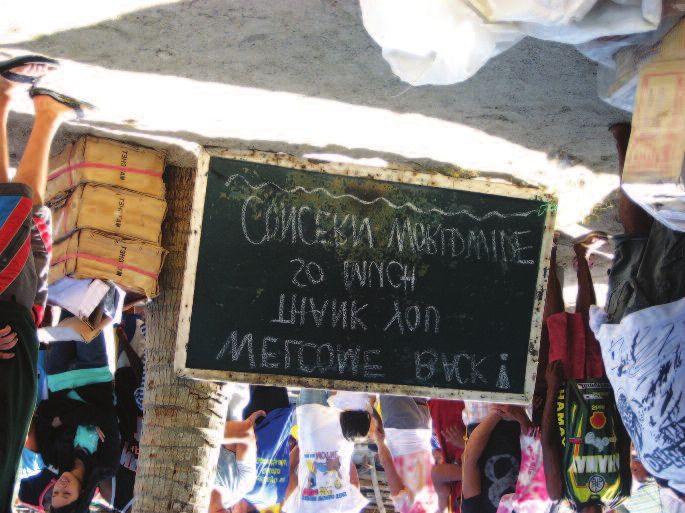 WELCOME BACK!
THANK YOU
SO MUCH
CONCERN WORLDWIDE